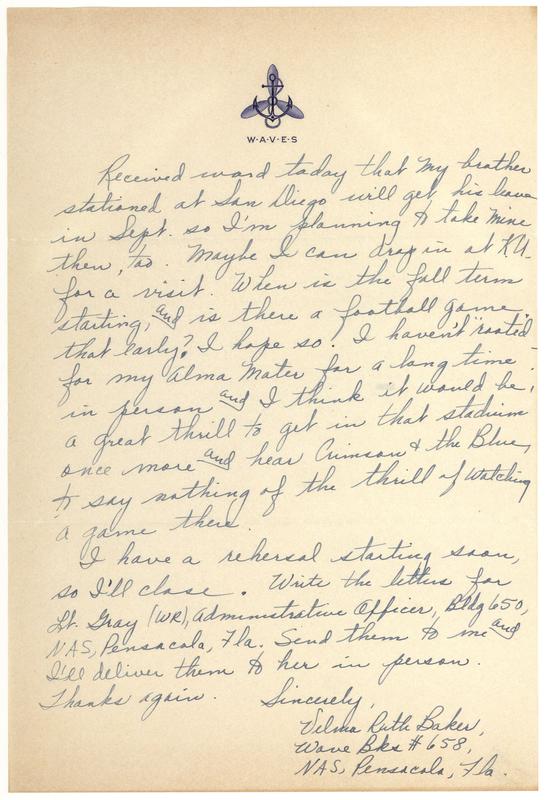 W·A·V·E·S
Received word today that my brother
stationed at San Diego will get his leave
in Sept. so I'm planning to take mine
then, too. Maybe I can drop in at KU
for a visit. When is the fall term
starting, and is there a football game
that early? I hope so. I haven't "rooted"
for my Alma Mater for a long time -
in person and I think it would be
a great thrill to get in that stadium
once more and hear Crimson & the Blue,
to say nothing of the thrill of watching
a game there.
I have a rehersal starting soon,
so I'll close. Write the letters for
Lt. Gray (WR), Administrative Officer, Bldg 650,
NAS, Pensacola, Fla. Send them to me and
I'll deliver them to her in person.
Thanks again. Sincerely,
Velma Ruth Baker,
Wave Bks # 658,
NAS, Pensacola, Fla.